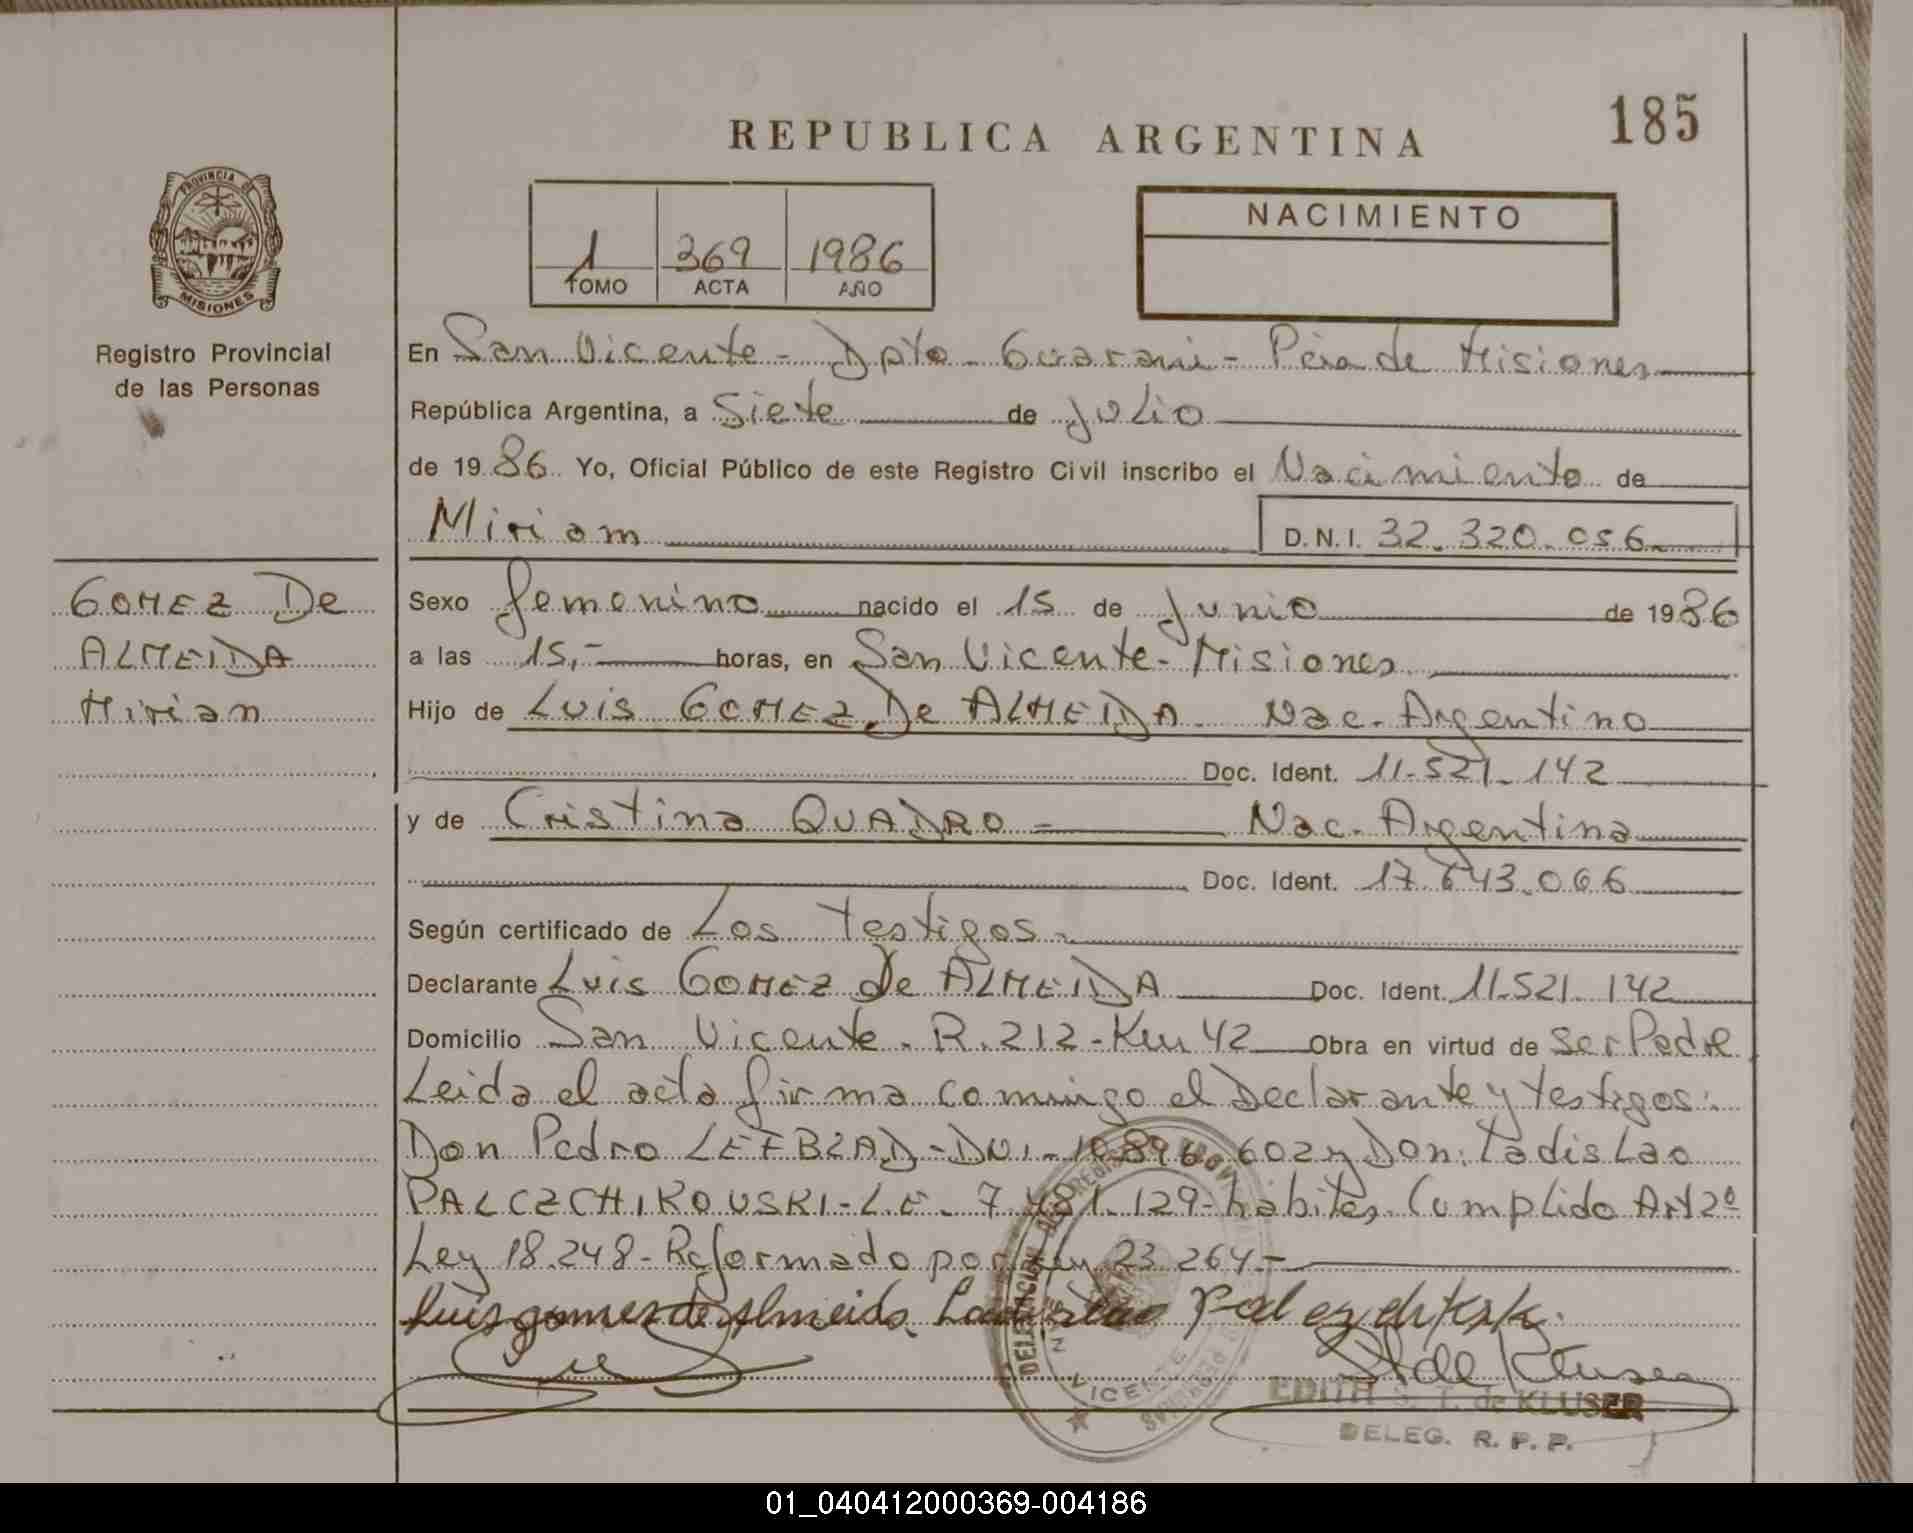 185
REPUBLICA ARGENTINA
PROVINCIA DE
MISIONES
Registro Provincial
de las Personas
1 369 1986
TOMO ACTA AÑO
NACIMIENTO
En San Vicente - Dpto - Guarani - Pcia de Misiones
República Argentina, a Siete de Julio
de 1986 Yo, Oficial Público de este Registro Civil inscribo el Nacimiento de
Miriam D.N.I. 32.320.056
GOMEZ De
ALMEIDA
Mirian
Sexo femenino nacido el 15 de Junio de 1986
a las 15,- horas, en San Vicente - Misiones
Hijo de Luis GOMEZ De ALMEIDA - Nac. Argentino
Doc. Ident. 11.521.142
y de Cristina QUADRO - Nac. Argentina
Doc. Ident. 17.643.066
Según certificado de Los Testigos.
Declarante Luis GOMEZ de ALMEIDA Doc. Ident. 11.521.142
Domicilio San Vicente - R.212 - Km 42 Obra en virtud de ser Padre
Leida el acta firma conmigo el Declarante y testigos:
Don Pedro DNI - 10.896.602 y Don: Ladislao
PALCZCHIKOUSKI - L.E. 7.481.129 - habiles. Cumplido Art 2º
Ley 18.248 - Reformado por Ley 23.264 -
Luis gomes de Almeida
EDITH S. T. de KLUSER
DELEG. R. P. P.
DELEGACION DEL REGISTRO
VICENTE
01_040412000369-004186